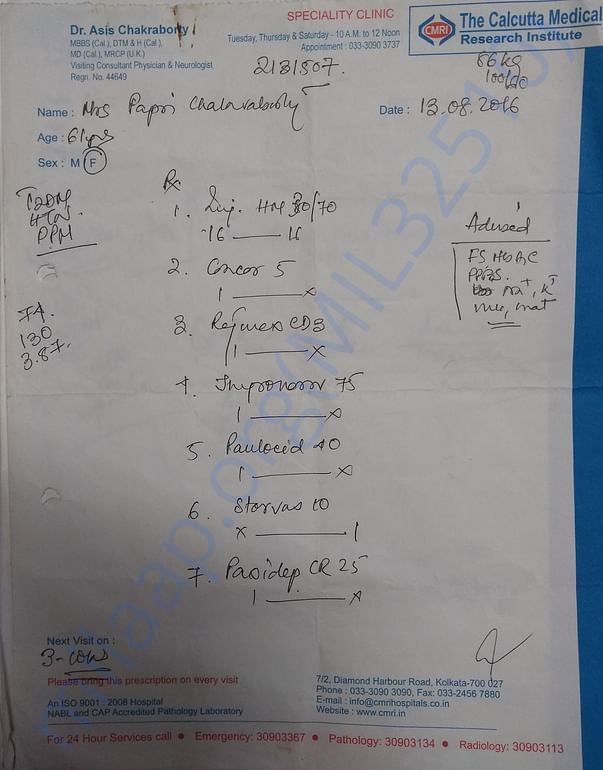 Dr. Asis Chakraborty
MBBS (Cal.), DTM & H (Cal.),
MD (Cal.), MRCP (U.K.)
Visiting Consultant Physician & Neurologist
Regn. No. 44649
SPECIALITY CLINIC
Tuesday, Thursday & Saturday - 10 A.M. to 12 Noon
Appointment : 033-3090 3737
CMRI
The Calcutta Medical
Research Institute
2131507.
66 kg
Name : Mrs Papri Chakraborty
Date : 13.08.2016
Age : 61 yrs
Sex : M F
T2DM
HTN
PPM
130
3.87
Rx
1. Inj. HM 30/70
16 —— 16
2. Concor 5
1 —— x
3.
1 —— x
4. 75
1 —— x
5. 40
1 —— x
6. Storvas 10
x —— 1
7. Paxidep CR 25
1 —— x
Advised
FS HbA1C
PPBS.
Na+, K+
Next Visit on :
Please bring this prescription on every visit
An ISO 9001 : 2008 Hospital
NABL and CAP Accredited Pathology Laboratory
7/2, Diamond Harbour Road, Kolkata-700 027
Phone : 033-3090 3090, Fax: 033-2456 7880
E-mail : info@cmrihospitals.co.in
Website : www.cmri.in
For 24 Hour Services call • Emergency: 30903367 • Pathology: 30903134 • Radiology: 30903113